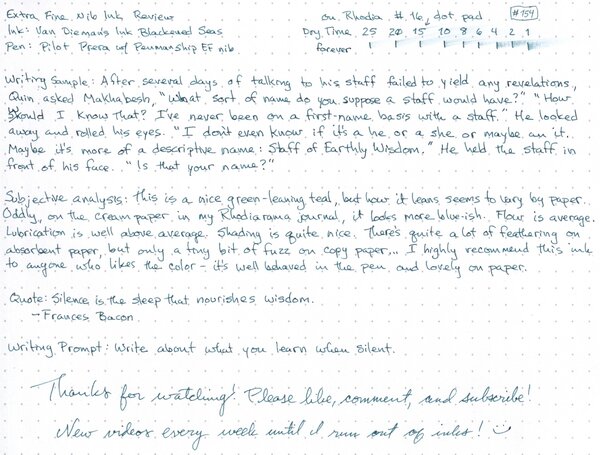 Extra Fine Nib Ink Review on Rhodia #16 dot pad #154
Ink: Van Dieman's Ink Blackened Seas Dry Time 25 20 15 10 8 6 4 2 1
Pen: Pilot Prera w/ Penmanship EF nib forever
Writing Sample: After several days of talking to his staff failed to yield any revelations,
Quin asked Makhabesh, "What sort of name do you suppose a staff would have?" "How
would I know that? I've never been on a first-name basis with a staff." He looked
away and rolled his eyes. "I don't even know if it's a he or a she or maybe an it.
Maybe it's more of a descriptive name: Staff of Earthly Wisdom." He held the staff in
front of his face. "Is that your name?"
Subjective analysis: This is a nice green-leaning teal, but how it leans seems to vary by paper.
Oddly, on the cream paper in my Rhodiarama journal, it looks more blue-ish. Flow is average.
Lubrication is well above average. Shading is quite nice. There's quite a lot of feathering on
absorbent paper, but only a tiny bit of fuzz on copy paper... I highly recommend this ink
to anyone who likes the color - it's well behaved in the pen and lovely on paper.
Quote: Silence is the sleep that nourishes wisdom.
- Frances Bacon
Writing Prompt: Write about what you learn when silent.
Thanks for watching! Please like, comment, and subscribe!
New videos every week until I run out of inks!